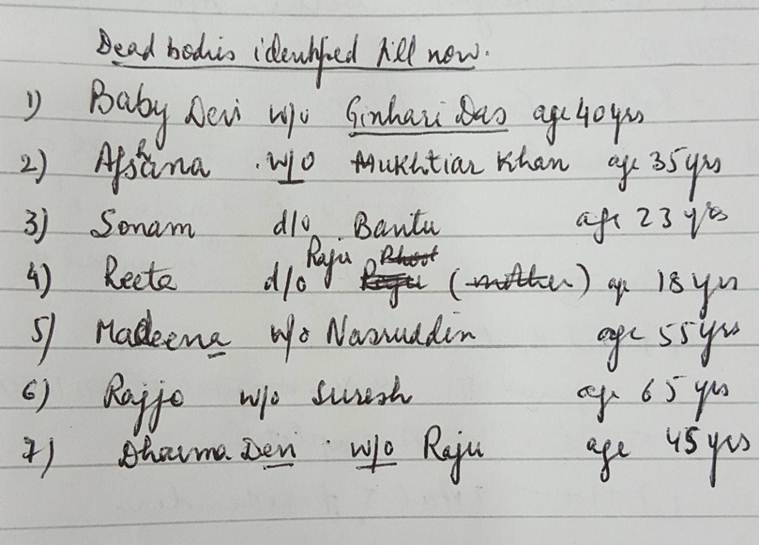 Dead bodies identified till now.
1) Baby Devi w/o Ginhari Das age 40 yrs
2) Afshana w/o Mukhtiar Khan age 35 yrs
3) Sonam d/o Bantu age 23 yrs
4) Reeta d/o Raju (mother) age 18 yrs
5) Madeena w/o Nasruddin age 55 yrs
6) Rajjo w/o Suresh age 65 yrs
7) Dharma Devi w/o Raju age 45 yrs